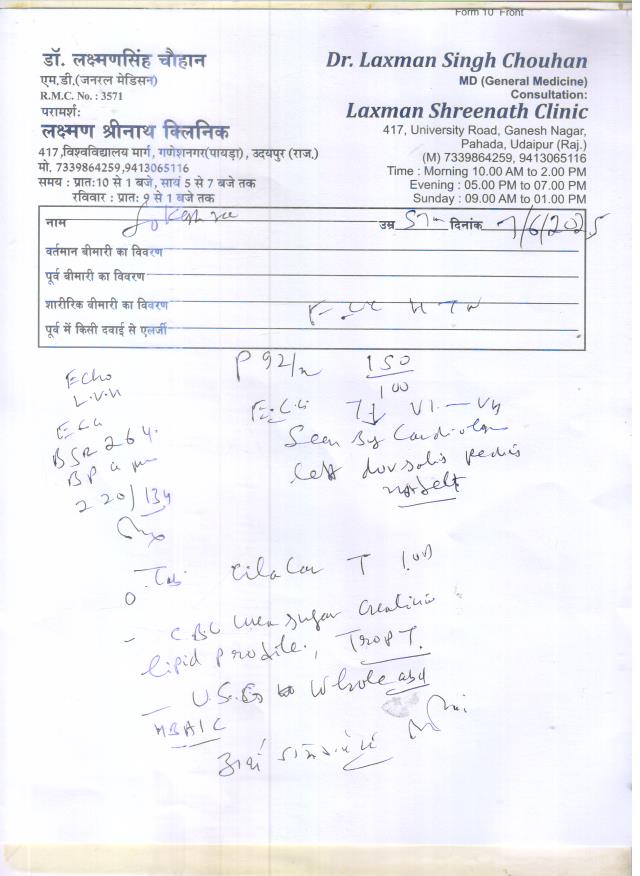 Form 10 Front
डॉ. लक्ष्मणसिंह चौहान
एम.डी.(जनरल मेडिसन)
R.M.C. No. : 3571
परामर्श:
लक्ष्मण श्रीनाथ क्लिनिक
417,विश्वविद्यालय मार्ग, गणेशनगर(पायड़ा) , उदयपुर (राज.)
मो. 7339864259,9413065116
समय : प्रातः10 से 1 बजे, सायं 5 से 7 बजे तक
रविवार : प्रातः 9 से 1 बजे तक
Dr. Laxman Singh Chouhan
MD (General Medicine)
Consultation:
Laxman Shreenath Clinic
417, University Road, Ganesh Nagar,
Pahada, Udaipur (Raj.)
(M) 7339864259, 9413065116
Time : Morning 10.00 AM to 2.00 PM
Evening : 05.00 PM to 07.00 PM
Sunday : 09.00 AM to 01.00 PM
नाम उम्र दिनांक 7/6/2025
वर्तमान बीमारी का विवरण
पूर्व बीमारी का विवरण
शारीरिक बीमारी का विवरण HTN
पूर्व में किसी दवाई से एलर्जी
P 92/m 150
100
Echo
L.V.H
ECG
BSR 264.
BP
220/134
E.C.G T↓ V1 — V4
Seen By
left dorsalis pedis
not felt
Tab Cilacar T
CBC sugar creatinin
lipid profile, TROP T.
U.S.G whole abd
HBA1C